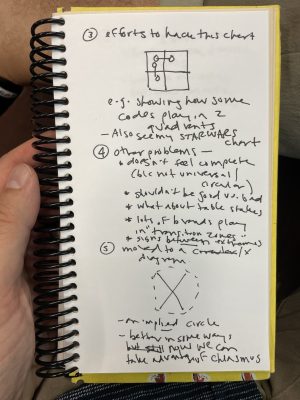 ③ efforts to hack this chart
e.g. showing how some
codes play in 2
quadrants
- Also see my STAR WARS
chart
④ other problems —
* doesn't feel complete
(b/c not universal/
circular)
* shouldn't be good vs. bad
* what about table stakes
* lots of brands play
in "transition zones"
* signs between extremes
⑤ moved to a /X
diagram
- an implied circle
- better in some ways
but still now we can
take advantage of chiasmus